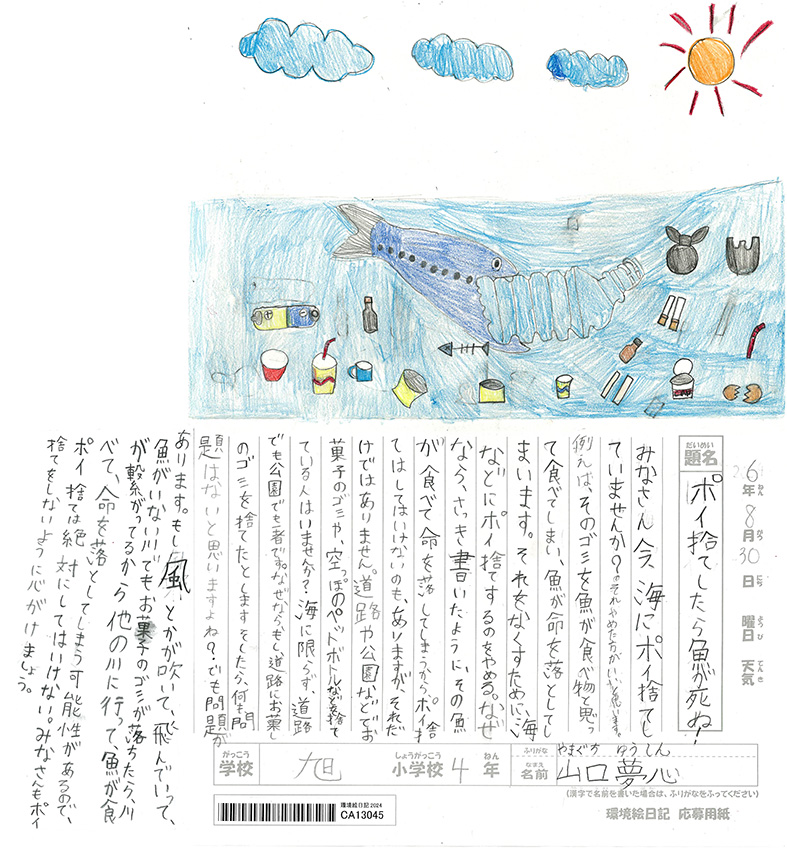 6年8月30日 曜日 天気
ねん がつ にち ようび てんき
だいめい
題名 ポイ捨てしたら魚が死ぬ!
みなさん今、海にポイ捨てし
ていませんか?それやめた方がいいと思います。
例えば、そのゴミを魚が食べ物と思っ
て食べてしまい、魚が命を落としてし
まいます。それをなくすために、海
などにポイ捨てするのをやめる。なぜ
なら、さっき書いたように、その魚
が食べて命を落してしまうからポイ捨
てはしてはいけないのも、ありますが、それだ
けではありません。道路や公園などでお
菓子のゴミや、空っぽのペットボトルなどを捨て
ている人はいませか?海に限らず、道路
でも公園でも者です。なぜなら、もし、道路にお菓し
のゴミを捨てたとします そしたら、何も問
題はないと思いますよね?でも問題が
あります。もし風とかが吹いて、飛んでいって、
魚がいない川でもお菓子のゴミが落ちたら、川
が繋がってるから他の川に行って、魚が食
べて、命を落としてしまう可能性があるので、
ポイ捨ては絶対にしてはいけない。みなさんもポイ
捨てをしないように心がけましょう。
がっこう しょうがっこう ねん ふりがな やまぐち ゆうしん
学校 旭 小学校 4年 なまえ 名前 山口夢心
(漢字で名前を書いた場合は、ふりがなをふってください)
環境絵日記2024
CA13045
環境絵日記 応募用紙